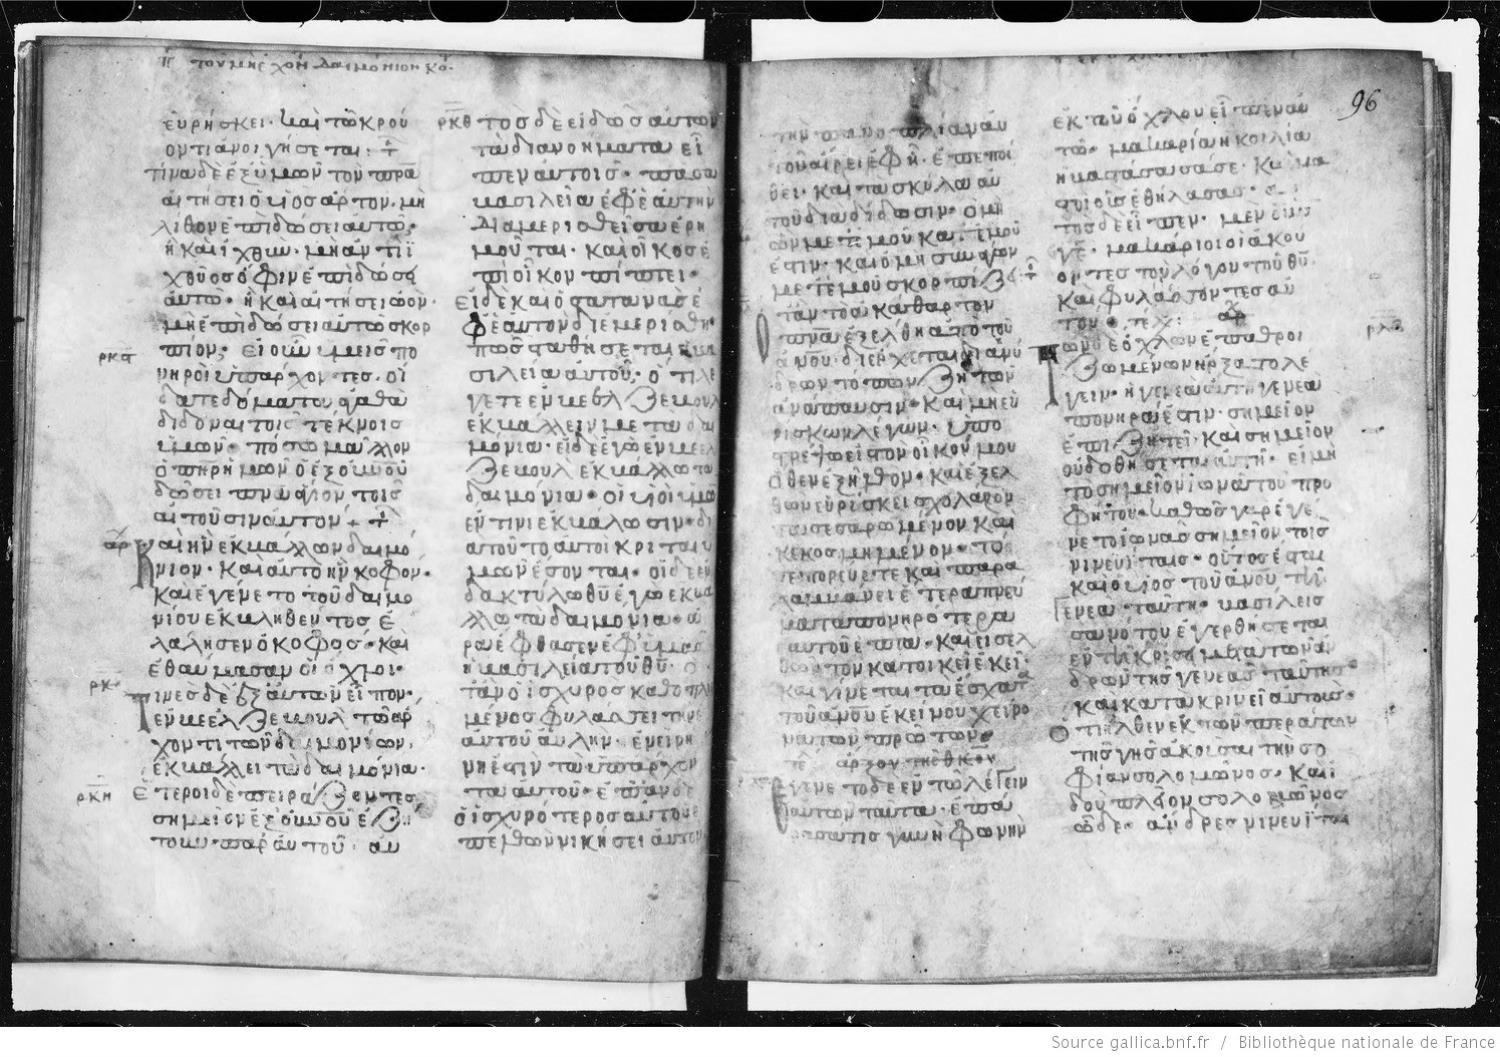 τοῦ μὴ ἔχον δαιμόνιον κω
εὑρήσκει· καὶ τῶ κρού
οντι ἀνοιγήσεται:
τίνα δὲ ἐξ ὑμῶν τὸν πρα
αἰτήσει ὁ υἱὸς ἄρτον· μὴ
λίθον ἐπιδώσει αὐτῶ·
ἢ καὶ ἰχθὺν· μὴ ἀντὶ ἰ
χθύος ὄφιν ἐπιδώσει
αὐτῶ· ἢ καὶ αἰτήσει ὠὸν·
μὴ ἐπιδώσει αὐτῶ σκορ
πίον· εἰ οὖν ὑμεῖς πο
νηροὶ ὑπάρχοντες· οἴ
δατε δόματα ἀγαθὰ
διδόναι τοῖς τέκνοις
ὑμῶν· πόσω μᾶλλον
ὁ πηρ ὑμῶν ὁ ἐξ οὐνοῦ
δώσει πνα ἅγιον τοῖς
αἰτοῦσιν αὐτόν
Καὶ ἦν ἐκβάλλων δαιμό
νιον· καὶ αὐτὸ ἦν κοφόν·
καὶ ἐγένετο τοῦ δαιμο
νίου ἐκβληθέντος ἐ
λάλησεν ὁ κοφός· καὶ
ἐθαύμασαν οἱ ὄχλοι·
Τινὲς δὲ ἐξ αὐτῶν εἶπον·
ἐν βεελζεβοὺλ τῶ ἄρ
χοντι τῶν δαιμονίων·
ἐκβάλλει τὰ δαιμόνια·
ρκη
Ἕτεροι δὲ πειράζοντες,
σημεῖον ἐξ οὐνοῦ ἐζή
τουν παρ᾽ αὐτοῦ· αὐ
ρκθ τὸς δὲ εἰδὼς αὐτῶν
τὰ διανοήματα εἶ
πεν αὐτοῖς· πᾶσα
βασιλεία ἐφ᾽ ἑαυτὴν
διαμερισθεῖσα ἐρη
μοῦται· καὶ οἶκος ἐ
πὶ οἶκον πίπτει·
Εἰ δὲ καὶ ὁ σατανᾶς ἐ
φ᾽ ἑαυτὸν διεμερίσθη·
πῶς σταθήσεται ἡ βα
σιλεία αὐτοῦ; ὅτι λέ
γετε ἐν βεελζεβοὺλ
ἐκβάλλειν με τὰ δαι
μόνια· εἰ δὲ ἐγὼ ἐν βεελ
ζεβοὺλ ἐκβάλλω τὰ
δαιμόνια· οἱ υἱοὶ ὑμῶ
ἐν τίνι ἐκβάλωσιν· δι
ατοῦτο αὐτοὶ κριταὶ ὑ
μῶν ἔσονται· εἰ δὲ ἐν
δακτύλω θῦ ἐγὼ ἐκβά
λλω τὰ δαιμόνια· ἄ
ρα ἔφθασεν ἐφ᾽ ἡμᾶς
ἡ βασιλεία τοῦ θῦ· ὅ
ταν ὁ ἰσχυρὸς καθοπλι
μένος φυλάσσει τὴν ἑ
αυτοῦ αὐλήν· ἐν εἰρή
νη ἐστὶν τὰ ὑπάρχον
τα αὐτοῦ· ἐπὰν δὲ
ὁ ἰσχυρότερος αὐτοῦ ἐ
πελθὼν νικήσει αὐτόν
96
τὴν πανοπλίαν αὐ
τοῦ αἴρει ἐφ᾽ ἧ· ἐπεποί
θει· καὶ τὰ σκύλα αὐ
τοῦ διαδίδωσιν· ὁ μὴ
ὢν μετ᾽ ἐμοῦ κατ᾽ ἐμοῦ
ἐστιν· καὶ ὁ μὴ συνάγων
μετ᾽ ἐμοῦ σκορπίζει
Ὅταν τὸ ἀκάθαρτον
πνα ἐξέλθη ἀπὸ τοῦ
ἀνου· διέρχεται δι᾽ ἀνύ
δρων τόπων ζητῶν
ἀνάπαυσιν· καὶ μὴ εὑ
ρίσκων λέγων· ὑπο
στρέψω εἰς τὸν οἶκόν μου
ὅθεν ἐξῆλθον· καὶ ἐξελ
θὼν εὑρίσκει σχολάζον
τα σεσαρωμένον καὶ
κεκοσμημένον· τό
τε πορεύετε καὶ παρα
λαμβάνει ἕτερα πνεύ
ματα πονηρότερα
αὐτοῦ ἑπτά· καὶ εἰσελ
θόντα κατοικεῖ ἐκεῖ·
καὶ γίνεται τὰ ἔσχατα
τοῦ ἀνου ἐκείνου χείρο
να τῶν πρώτων·
Ἐγένετο δὲ ἐν τῶ λέγειν
αὐτὸν ταῦτα· ἐπά
ρασά τις γυνὴ φωνὴν
ἐκ τοῦ ὄχλου εἶπεν αὐ
τῶ· μακαρία ἡ κοιλία
ἡ βαστάσασά σε· καὶ μα
στοὶ οὓς ἐθήλασας· αὐ
τὸς δὲ εἶπεν· μενοῦν
γε· μακάριοι οἱ ἀκού
οντες τὸν λόγον τοῦ θῦ·
καὶ φυλάσσοντες αὐ
τόν·
Τῶν δὲ ὄχλων ἐπαθροι
ζωμένων ἤρξατο λέ
γειν· ἡ γενεὰ αὕτη γενεὰ
πονηρά ἐστιν· σημεῖον
ἐπιζητεῖ· καὶ σημεῖον
οὐ δοθήσεται αὐτῆ· εἰ μὴ
τὸ σημεῖον ἰωνᾶ τοῦ προ
φήτου· καθὼς γὰρ ἐγέ
νετο ἰωνᾶς σημεῖον τοῖς
νινευίταις· οὕτως ἔσται
καὶ ὁ υἱὸς τοῦ ἀνου τῆ
γενεᾶ ταύτη· βασίλεισ
σα νότου ἐγερθήσεται
ἐν τῆ κρίσει μετὰ τῶν ἀν
δρῶν τῆς γενεᾶς ταύτης
καὶ κατακρινεῖ αὐτούς·
ὅτι ἦλθεν ἐκ τῶν περάτων
τῆς γῆς ἀκοῦσαι τὴν σο
φίαν σολομῶνος· καὶ ἰ
δοὺ πλεῖον σολομῶνος
ὧδε· ἄνδρες νινευῖται
Source gallica.bnf.fr / Bibliothèque nationale de France